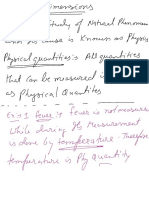 Dimensions
Study of Natural Phenomen
its cause is known as Physics
Physical quantities:- All quantities
that can be measured is
as Physical Quantites
Ex:1 fever is fever is not measure
While during its Measurement
is done by temperature. Therefore
temperature is Ph Quantity